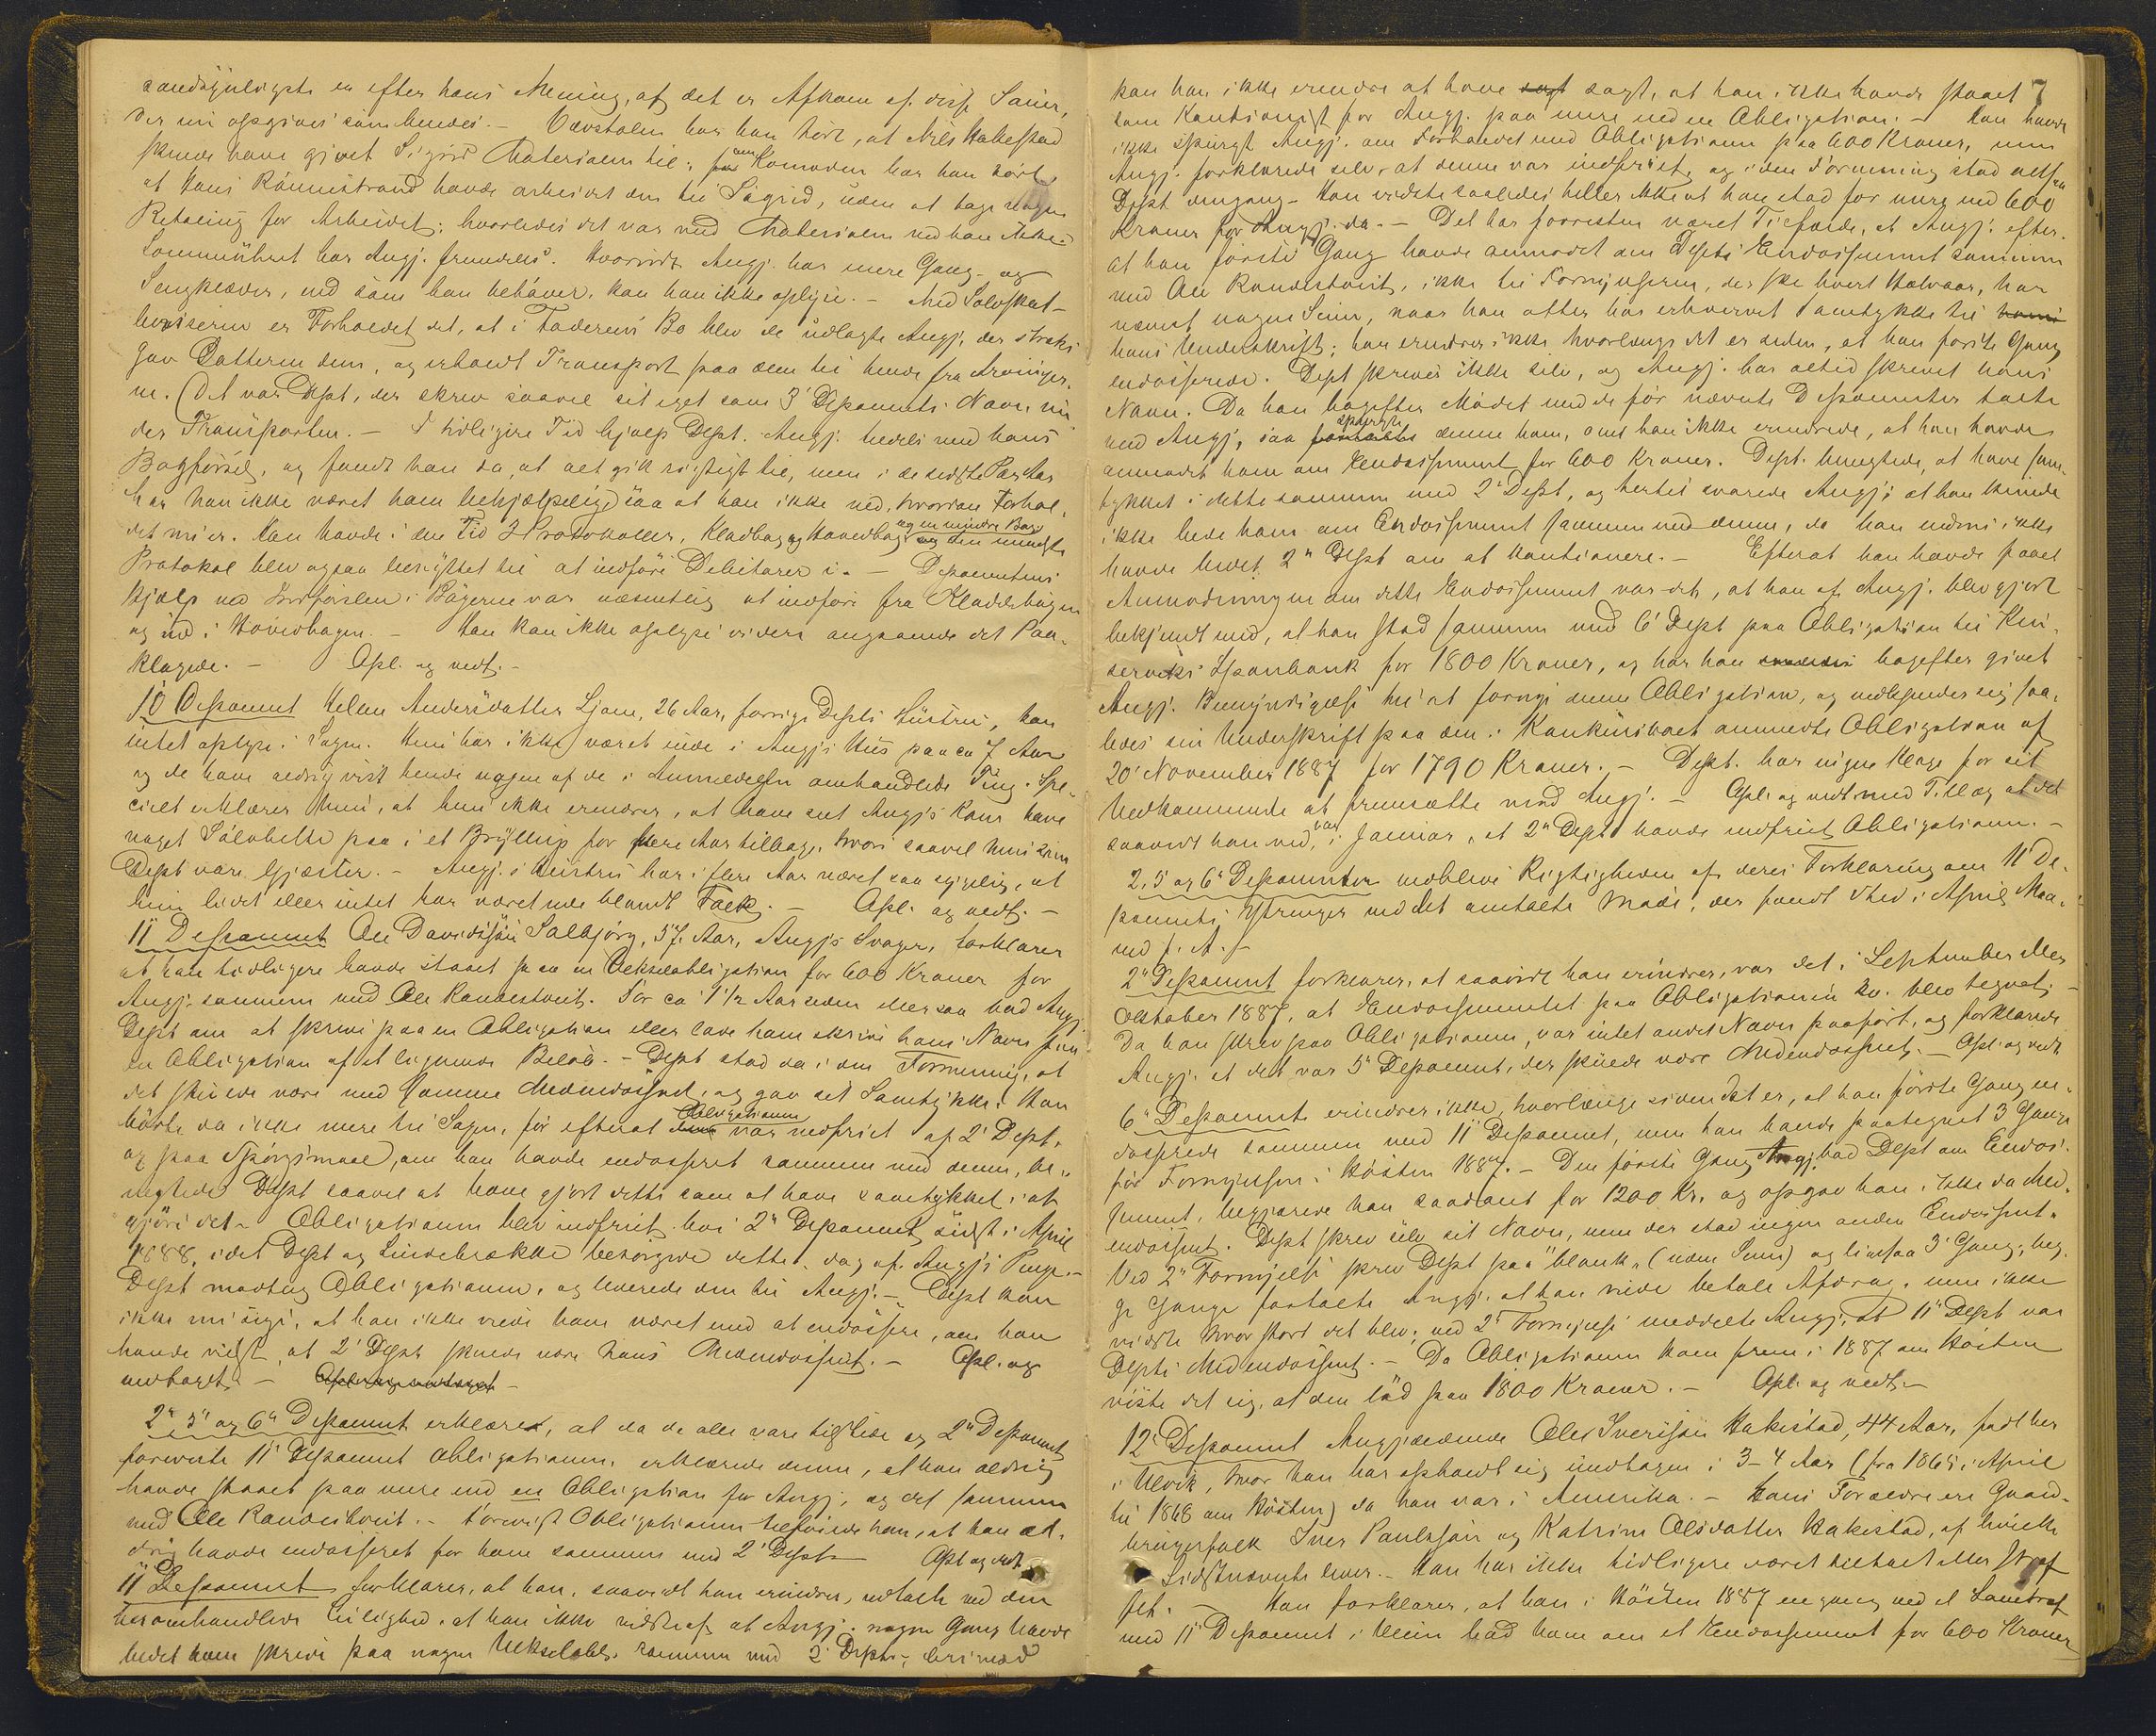 sandsynligste er efter hans Mening, at det er Afkom af disse Sauer,
der nu opgives som hendes. – Vævstolen har han hört, at Nils Hakestad
skulde have givet Sigrid Materialen til; om Komoden har han hört,
at Hans Rönnestrand havde arbeidet den til Sigrid, uden at tage nogen
Betaling for Arbeidet; hvorledes det var med Materialen ved han ikke.
Lommeuhret har Angj. fremdeles. Hvorvidt Angj. har mere Gang- og
Sengklæder, end som han behöver, kan han ikke oplyse. – Med Solvskat-
beviserne er Forholdet det, at i Faderens Bo blev de udlagte Angj, der straks
gav Datteren dem, og erholdt Transport paa dem til hende fra Arvinger-
ne. (Det var Dept, der skrev saavel sit eget som 3' Deponents Navn un-
der Transporten. – I tidligere Tid hjalp Dept. Angj. tildels med hans
Bogförsel, og fandt han da, at alt gik rigtigt til, men i de sidste Par Aar
har han ikke været ham behjælpelig saa at han ikke ved, hvordan Forhol-
det nu er. Han havde i den Tid 3 Protokoller, Kladbog og Hovedbog og en mindre Bog; den mindste
Protokol blev ogsaa benyttet til at indföre Debitorer i. – Deponentens
Hjælp ved Indförslen i Bögerne var væsentlig at indföre fra Kladdebogen
og ind i Hovedbogen. – Han kan ikke oplyse videre angaaende det Paa-
klagede. – Opl. og vedt. –
10 Deponent Helene Andersdatter Ljone, 26 Aar, forrige Depts Hustru, kan
intet oplyse i Sagen. Hun har ikke været inde i Angj's Hus paa ca 7 Aar
og de have aldrig vist hende nogen af de i Anmeldelsen omhandlede Ting. Spe-
cielt erklærer hun, at hun ikke erindrer, at have seet Angj's Kone have
noget Sölvbelte paa i et Bryllup for flere Aar tilbage, hvori saavel hun som
Dept vare Gjæster. – Angj.s Hustru har i flere Aar været saa sygelig, at
hun lidet eller intet har været ude blandt Folk. – Opl. og vedt. –
11 Deponent Ole Davidsön Salbjörg, 57 Aar, Angj's Svoger, forklarer
at han tidligere havde staaet paa en Vekselobligation for 600 Kroner for
Angj. sammen med Ole Randestveit. For ca 1 1/2 Aar siden eller saa bad Angj
Dept om at skrive paa en Obligation eller lade ham skrive hans Navn paa
en Obligation af et lignende Belöb. – Dept stod da i den Formening, at
det skulde være med samme Medendossent, og gav sit Samtykke. Han
hörte da ikke mere til Sagen, för efterat Obligationen var indfriet af 2' Dept.
og paa Spörgsmaal, om han havde endosseret sammen med denne, be-
negtede Dept saavel at have gjort dette som at have samtykket i at
gjöre det. – Obligationen blev indfriet hos 2' Deponent sidst i April
1888, idet Dept og Lindebrække besörgede dette, dog af Angj's Penge. –
Dept modtog Obligationen, og leverede den til Angj. – Dept kan
ikke nu sige, at han ikke vilde have været med at endossere, om han
havde vidst, at 2' Dept skulde være hans Medendossent. – Opl. og
vedtaget. –
2' 5' og 6' Deponent erklære, at da de alle vare tilstede og 2' Deponent
foreviste 11' Deponent Obligationen, erklærede denne, at han aldrig
havde staaet paa mere end en Obligation for Angj, og det sammen
med Ole Randestveit. – Forevist Obligationen tilföiede han, at han al-
drig havde endosseret for ham sammen med 2' Dept – Opl og vedt.
11' Deponent forklarer, at han, saavidt han erindrer, udtalte ved den
heromhandlede Leilighed, at han ikke vidste af at Angj. nogen Gang havde
bedet ham skrive paa nogen Vekselobl. sammen med 2' Dept.; derimod
kan han ikke erindre at have sagt, at han ikke havde staaet 7
som Kautionist for Angj. paa mere end en Obligation. – Han havde
ikke spurgt Angj. om Forholdet med Obligationen paa 600 Kroner, men
Angj. forklarede selv, at denne var indfriet, og i den Formening stod altsaa
Dept dengang. Han vidste saaledes heller ikke at han stod for mere end 600
Kroner for Angj. da. – Det har forresten været Tilfælde, at Angj. efter-
at han förste Gang havde anmodet om Depts Endossement sammen
med Ole Randestveit, ikke til Fornyelserne, der ske hvert Halvaar, har
nævnt nogen Seinn, naar han atter har erhvervet Samtykke til
hans Underskrift; han erindrer ikke hvorlænge det er siden, at han forste Gang
endosserede. Dept skrives ikke selv, og Angj. har altid skrevet hans
Navn. Da han bagefter Mödet med de för nævnte Deponenter talte
med Angj, saa spurgte denne ham, om han ikke erindrede, at han havde
anmodet ham om Endossement for 600 Kroner. Dept. benegtede, at have sam-
tykket i dette sammen med 2' Dept, og hertil svarede Angj, at han kunde
ikke bede ham om Endossement sammen med denne, da han endnu ikke
havde bedet 2' Dept om at kautionere. – Efterat han havde faaet
Anmodningen om dette Endossement var det, at han af Angj. blev gjort
bekjendt med, at han stod sammen med 6' Dept paa Obligation til Kin-
serviks Sparebank for 1800 Kroner, og har han bagefter givet
Angj. Bemyndigelse til at fornye denne Obligation, og vedkjender sig saa-
ledes sin Underskrift paa den i Konkursboet anmeldte Obligation af
20' November 1887 for 1790 Kroner. – Dept. har ingen Klage for sit
Vedkommende at fremsætte mod Angj. – Opl. og vedt. med Tillæg at det
saavidt han ved, var i Januar, at 2' Dept havde indfriet Obligationen. –
2, 5 og 6' Deponenter vedbleve Rigtigheden af deres Forklaring om 11 De-
ponents Ytringer ved det omtalte Möde, der fandt Sted i April Maa-
ned f. A. –
2' Deponent forklarer, at saavidt han erindrer, var det i September eller
Oktober 1887, at Endossementet paa Obligationen blev tegnet; –
Da han skrev paa Obligationen, var intet andet Navn paafört, og forklarede
Angj. at det var 5' Deponent, der skulde være Medendossent. – Opl. og vedt.
6' Deponent erindrer ikke, hvorlænge siden det er, at han förste Gang en-
dosserede sammen med 11' Deponent, men han havde paategnet 3 Gange
för Fornyelsen i Hösten 1887. – Den förste Gang Angj. bad Dept om Endos-
sement, begjærede han saadant for 1200 Kr. og opgav han ikke da Med-
endossent. Dept skrev selv sit Navn, men der stod ingen anden Endossent.
Ved 2' Fornyelse skrev Dept paa "blank" (uden Sum) og ligesaa 3' Gang; beg-
ge Gange fortalte Angj. at han vilde betale Afdrag, men ikke
vidste hvor stort det blev; ved 2' Fornyelse meddelte Angj, at 11' Dept var
Depts Medendossent. – Da Obligationen kom frem i 1887 om Hösten
viste det sig, at den löd paa 1800 Kroner. – Opl. og vedt. –
12' Deponent Angjældende Ole Iversön Hakestad, 44 Aar, födt her
i Ulvik, hvor han har opholdt sig undtagen i 3–4 Aar (fra 1865 i April
til 1868 om Hösten) da han var i Amerika. – Hans Forældre ere Gaard-
brugerfolk Iver Paulssön og Katrine Olsdatter Hakestad, af hvilke
Sidstnævnte lever. – Han har ikke tidligere været tiltalt eller straf-
fet. – Han forklarer, at han i Hösten 1887 engang ved et Sammentræf
med 11' Deponent i Veien bad ham om et Endossement for 600 Kroner